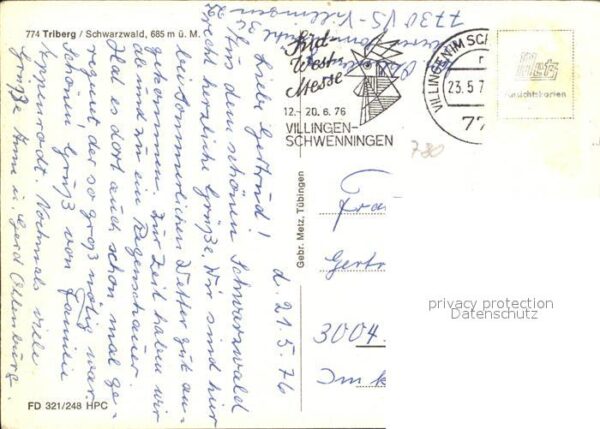 774 Triberg / Schwarzwald, 685 m ü. M.
7730 VS-Villingen
Süd
West
Messe
12.-20.6.76
VILLINGEN-
SCHWENNINGEN
VILLINGEN IM SC
23.5.7
77
Metz
Ansichtskarten
780
d. 21.5.76
Liebe Gertrud!
Aus dem schönen Schwarzwald
herzliche Grüße. Wir sind hier
bei sommerlichen Wetter gut an-
gekommen. Zur Zeit haben wir
ab und zu ein Regenschauer.
Hat es dort auch schon mal ge-
regnet der so groß nötig war.
Schönen Gruß von Familie
Nochmals viele
Grüße u. Gerd Ollenburg.
Gebr. Metz, Tübingen
Fra
Gertr
3004
Im K
privacy protection
Datenschutz
FD 321/248 HPC